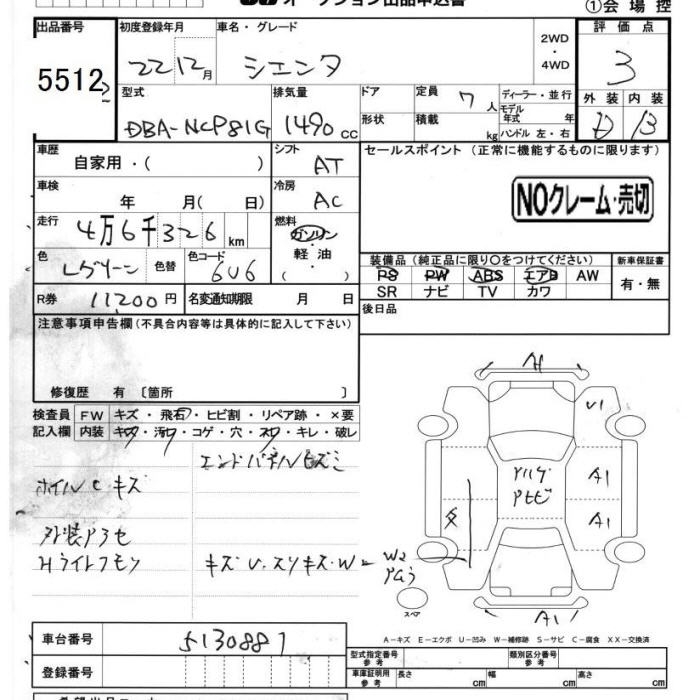 オークション出品申込書
①会場控
出品番号
5512
初度登録年月
22 12月
車名・グレード
シエンタ
2WD
・
4WD
評価点
3
型式
DBA-NCP81G
排気量
1490 cc
ドア
形状
定員 7 人
積載 kg
ディーラー・並行
モデル
年式 年
ハンドル 左・右
外装 内装
D B
車歴
自家用・( )
シフト
AT
セールスポイント(正常に機能するものに限ります)
車検
年 月( 日)
冷房
AC
NOクレーム・売切
走行
4万6千326 km
燃料
ガソリン
・
軽油
・
( )
色
Lグリーン
色替
色コード
6U6
装備品(純正品に限り○をつけてください)
新車保証書
PS PW ABS エアB AW
SR ナビ TV カワ
有・無
R券 11200円
名変通知期限 月 日
後日品
注意事項申告欄(不具合内容等は具体的に記入して下さい)
修復歴 有〔箇所 〕
検査員
記入欄
FW キズ・飛石・ヒビ割・リペア跡・×要
内装 キズ・汚れ・コゲ・穴・スレ・キレ・破レ
エンドパネルヒズミ
ホイルC キズ
外装アセ
Hライトクモリ
キズ U・スリキズ・W2
A
U1
A1
A1
W2
A1
スペア
A－キズ E－エクボ U－凹み W－補修跡 S－サビ C－腐食 XX－交換済
車台番号
5130887
登録番号
型式指定番号
参考
類別区分番号
参考
車庫証明用
参考
長さ cm
幅 cm
高さ cm